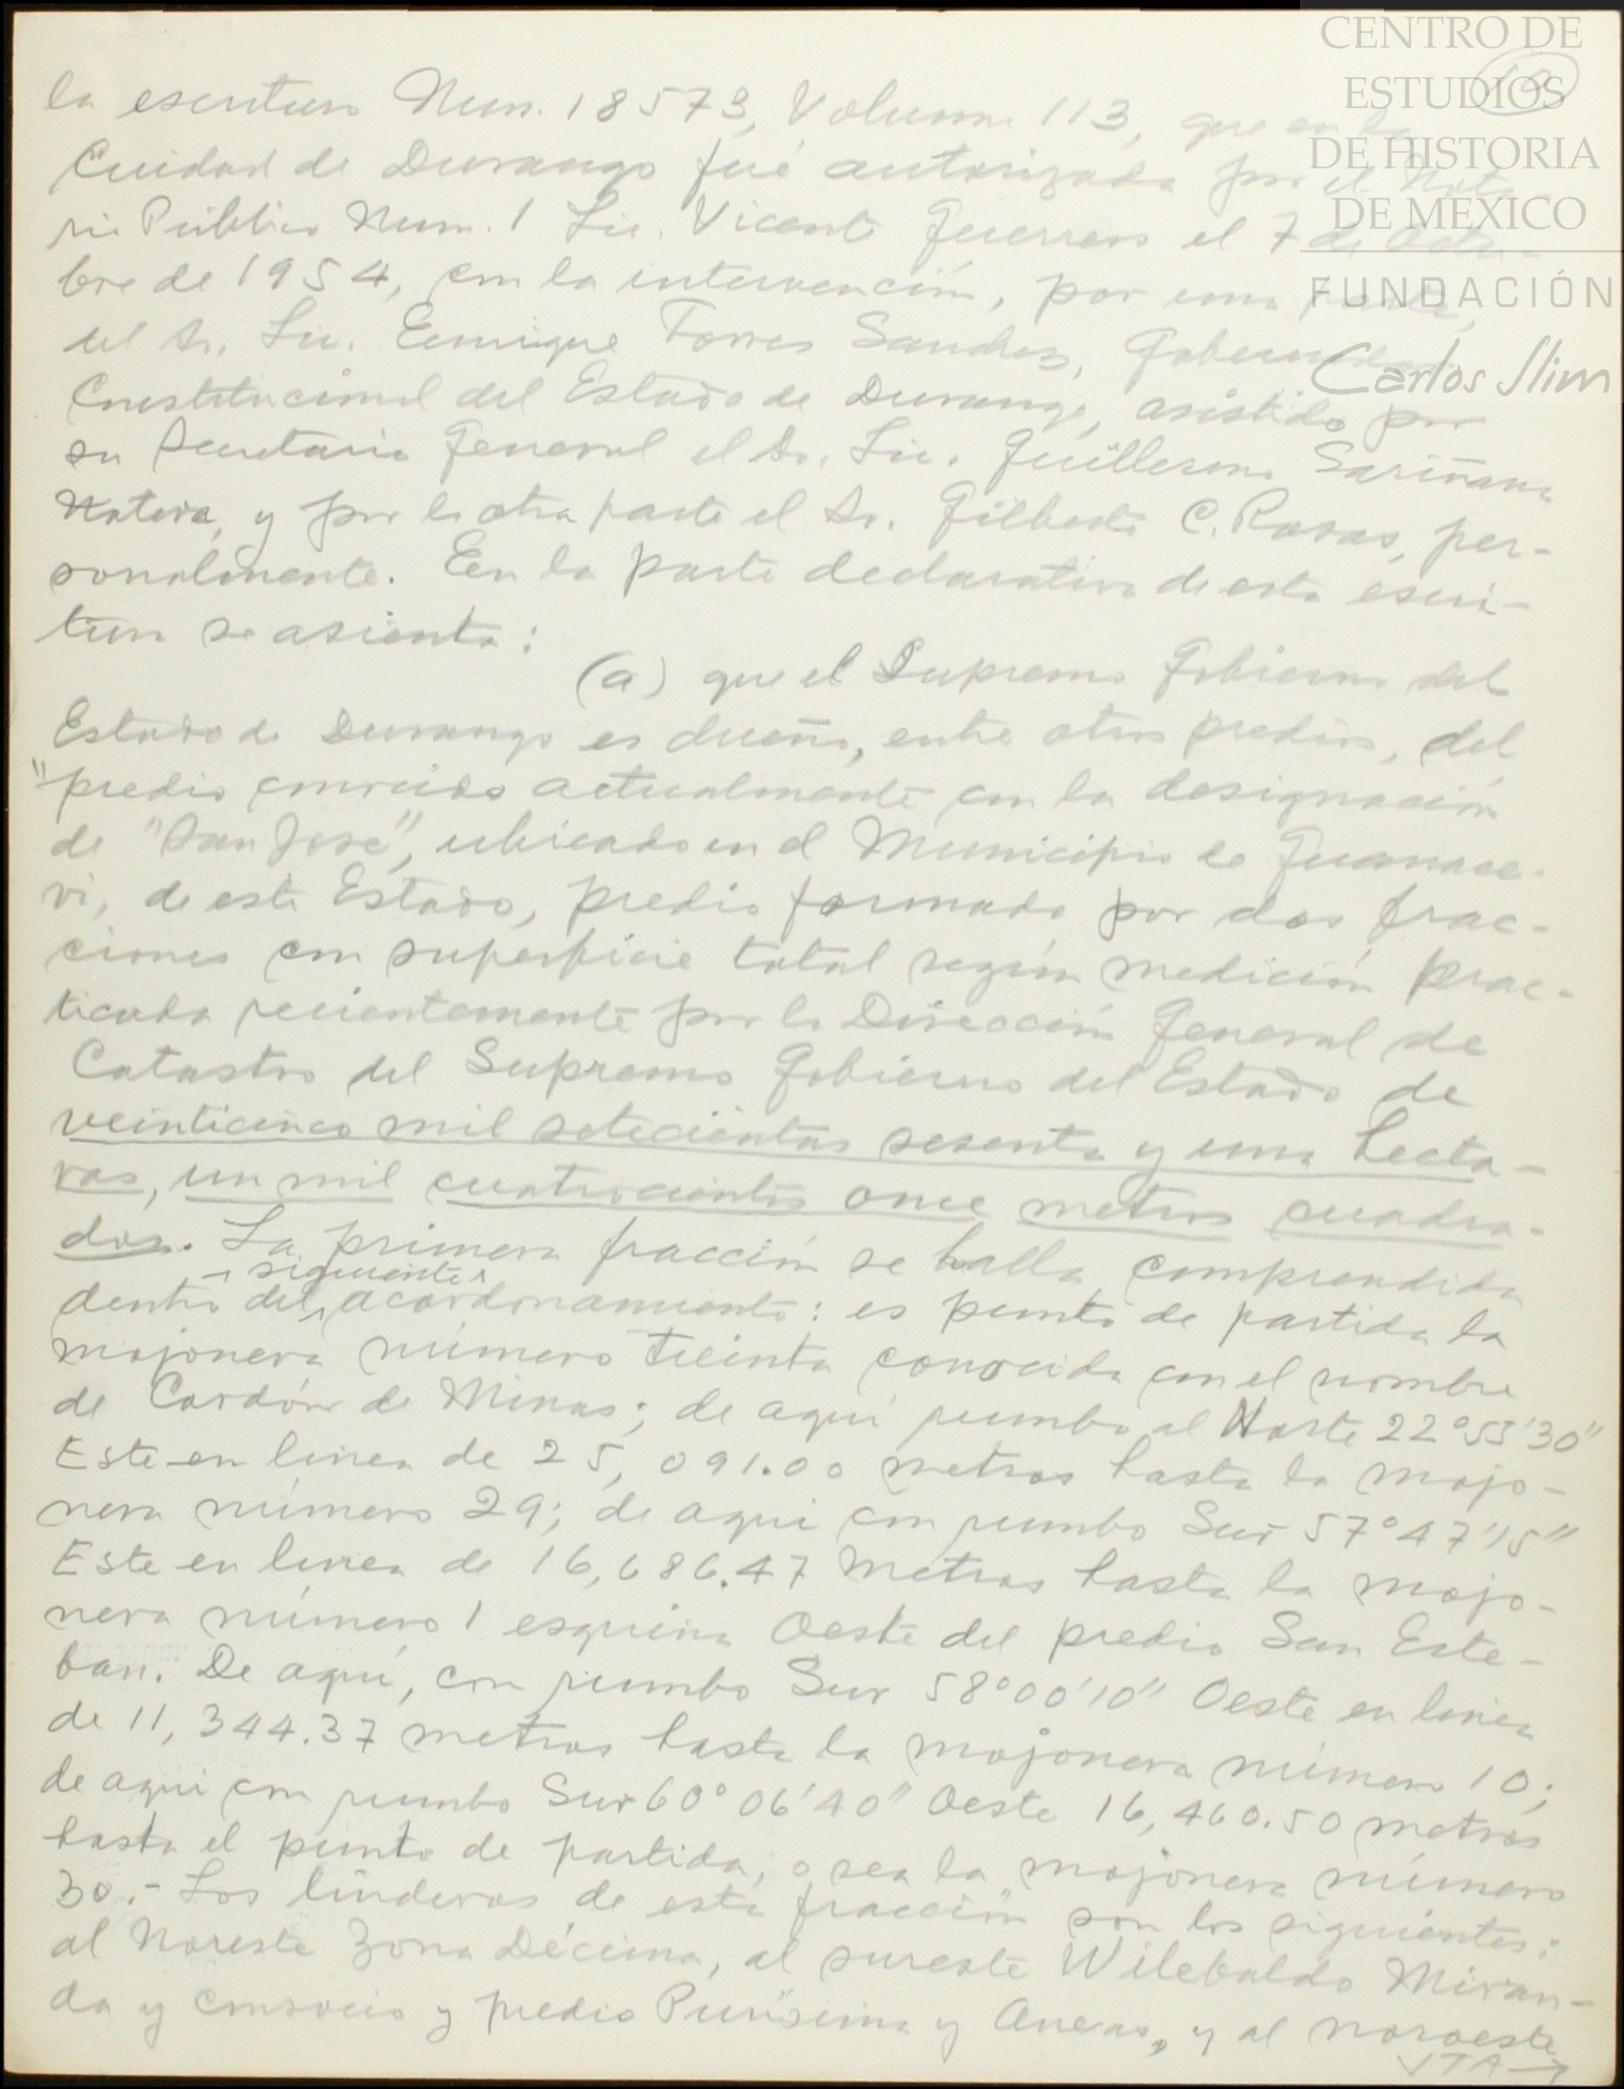 CENTRO DE
ESTUDIOS
DE HISTORIA
DE MÉXICO
FUNDACIÓN
Carlos Slim
la escritura Num. 18573, Volumen 113, que en la
Cuidad de Durango fué autorizada por el Nota-
rio Público Num. 1 Lic. Vicente Guerrero el 7 de Octu-
bre de 1954, con la intervención, por una parte,
del Sr. Lic. Enrique Torres Sanchez, Gobernador
Constitucional del Estado de Durango, asistido por
su Secretario General el Sr. Lic. Guillermo Sariñana
Natera, y por la otra parte el Sr. Gilberto C. Rosas, per-
sonalmente. En la parte declarativa de esta escri-
tura se asienta:
(a) que el Supremo Gobierno del
Estado de Durango es dueño, entre otros predios, del
"predio conocido actualmente con la designación
de "San José", ubicado en el Municipio de Guanace-
vi, de este Estado, predio formado por dos frac-
ciones con superficie total según medición prac-
ticada recientemente por la Dirección General de
Catastro del Supremo Gobierno del Estado de
veinticinco mil setecientas sesenta y una hecta-
ras, un mil cuatrocientos once metros cuadra-
dos. La primera fracción se halla comprendida
siguiente
dentro del acordonamiento: es punto de partida la
mojonera número treinta conocida con el nombre
de Cordón de Minas; de aquí rumbo al Norte 22°53'30"
Este en linea de 25,091.00 metros hasta la mojo-
nera número 29; de aqui con rumbo Sur 57°47'15"
Este en linea de 16,686.47 metros hasta la mojo-
nera número 1 esquina Oeste del predio San Este-
ban. De aquí, con rumbo Sur 58°00'10" Oeste en linea
de 11,344.37 metros hasta la mojonera número 10;
de aqui con rumbo Sur 60°06'40" Oeste 16,460.50 metros
hasta el punto de partida, o sea la mojonera número
30.- Los linderos de esta fracción son los siguientes:
al Noreste Zona Décima, al sureste Wilebaldo Miran-
da y consocio y predio Purísima y Anexas, y al noroeste
VTA